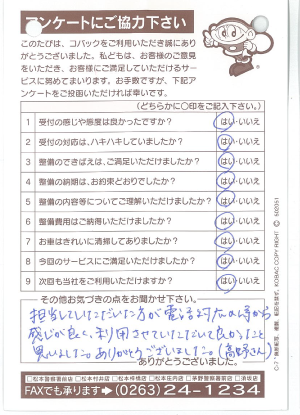 アンケートにご協力下さい
このたびは、コバックをご利用いただき誠にあり
がとうございました。私どもは、お客様のご意見
をいただき、お客様にご満足していただけるサー
ビスに努めてまいります。お手数ですが、下記ア
ンケートをご投函いただければ幸いです。
(どちらかに○印をご記入下さい。)
1 受付の感じや態度は良かったですか？ はい・いいえ
2 受付の対応は、ハキハキしていましたか？ はい・いいえ
3 整備のできばえは、ご満足いただけましたか？ はい・いいえ
4 整備の納期は、お約束どおりでしたか？ はい・いいえ
5 整備の内容等についてご理解いただけましたか？ はい・いいえ
6 整備費用はご納得いただけましたか？ はい・いいえ
7 お車はきれいに清掃してありましたか？ はい・いいえ
8 今回のサービスにご満足いただけましたか？ はい・いいえ
9 次回も当社をご利用いただけますか？ はい・いいえ
その他お気づきの点をお聞かせ下さい。
担当していただいた方が電話対応の時から
感じが良く、利用させていただいて良かったと
思いました。ありがとうございました。(高野さん)
ありがとうございました。
□松本警察署前店 □松本村井店 □松本梓橋店 □松本庄内店 □茅野警察署前店 □須坂店
FAXでも承ります➡(0263)24-1234
C-7 無断転写、複製、転売を禁ず。KOBAC COPY RIGHT © 502051